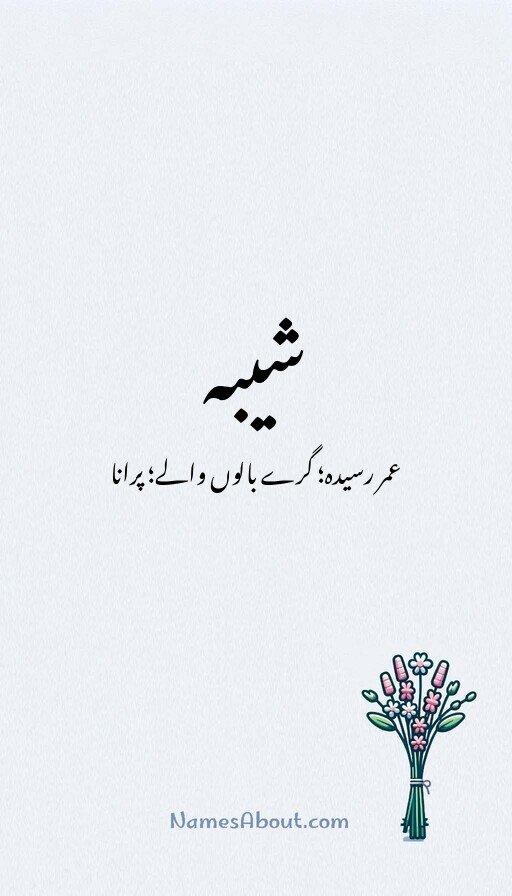 شیبہ
عمر رسیدہ؛ گرے بالوں والے؛ پرانا
NamesAbout.com